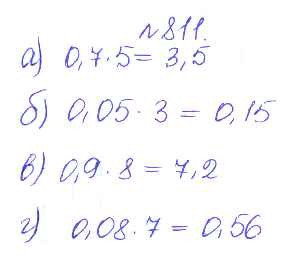 №811.
а) 0,7·5= 3,5
б) 0,05·3 = 0,15
в) 0,9·8 = 7,2
г) 0,08·7 = 0,56